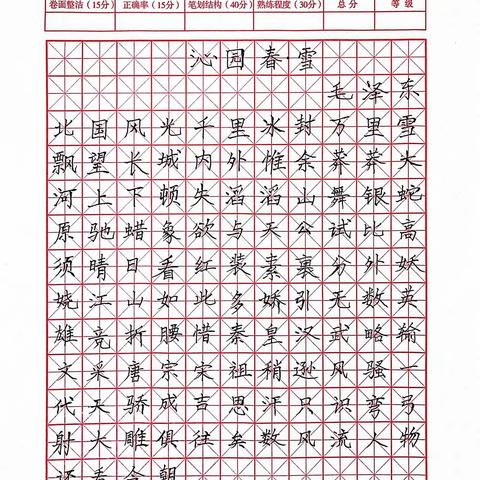 卷面整洁（15分） 正确率（15分） 笔划结构（40分） 熟练程度（30分） 总分 等级
沁园春·雪
毛泽东
北国风光千里冰封万里雪
飘望长城内外惟余莽莽大
河上下顿失滔滔山舞银蛇
原驰蜡象欲与天公试比高
须晴日看红装素裹分外妖
娆江山如此多娇引无数英
雄竞折腰惜秦皇汉武略输
文采唐宗宋祖稍逊风骚一
代天骄成吉思汗只识弯弓
射大雕俱往矣数风流人物
还看今朝